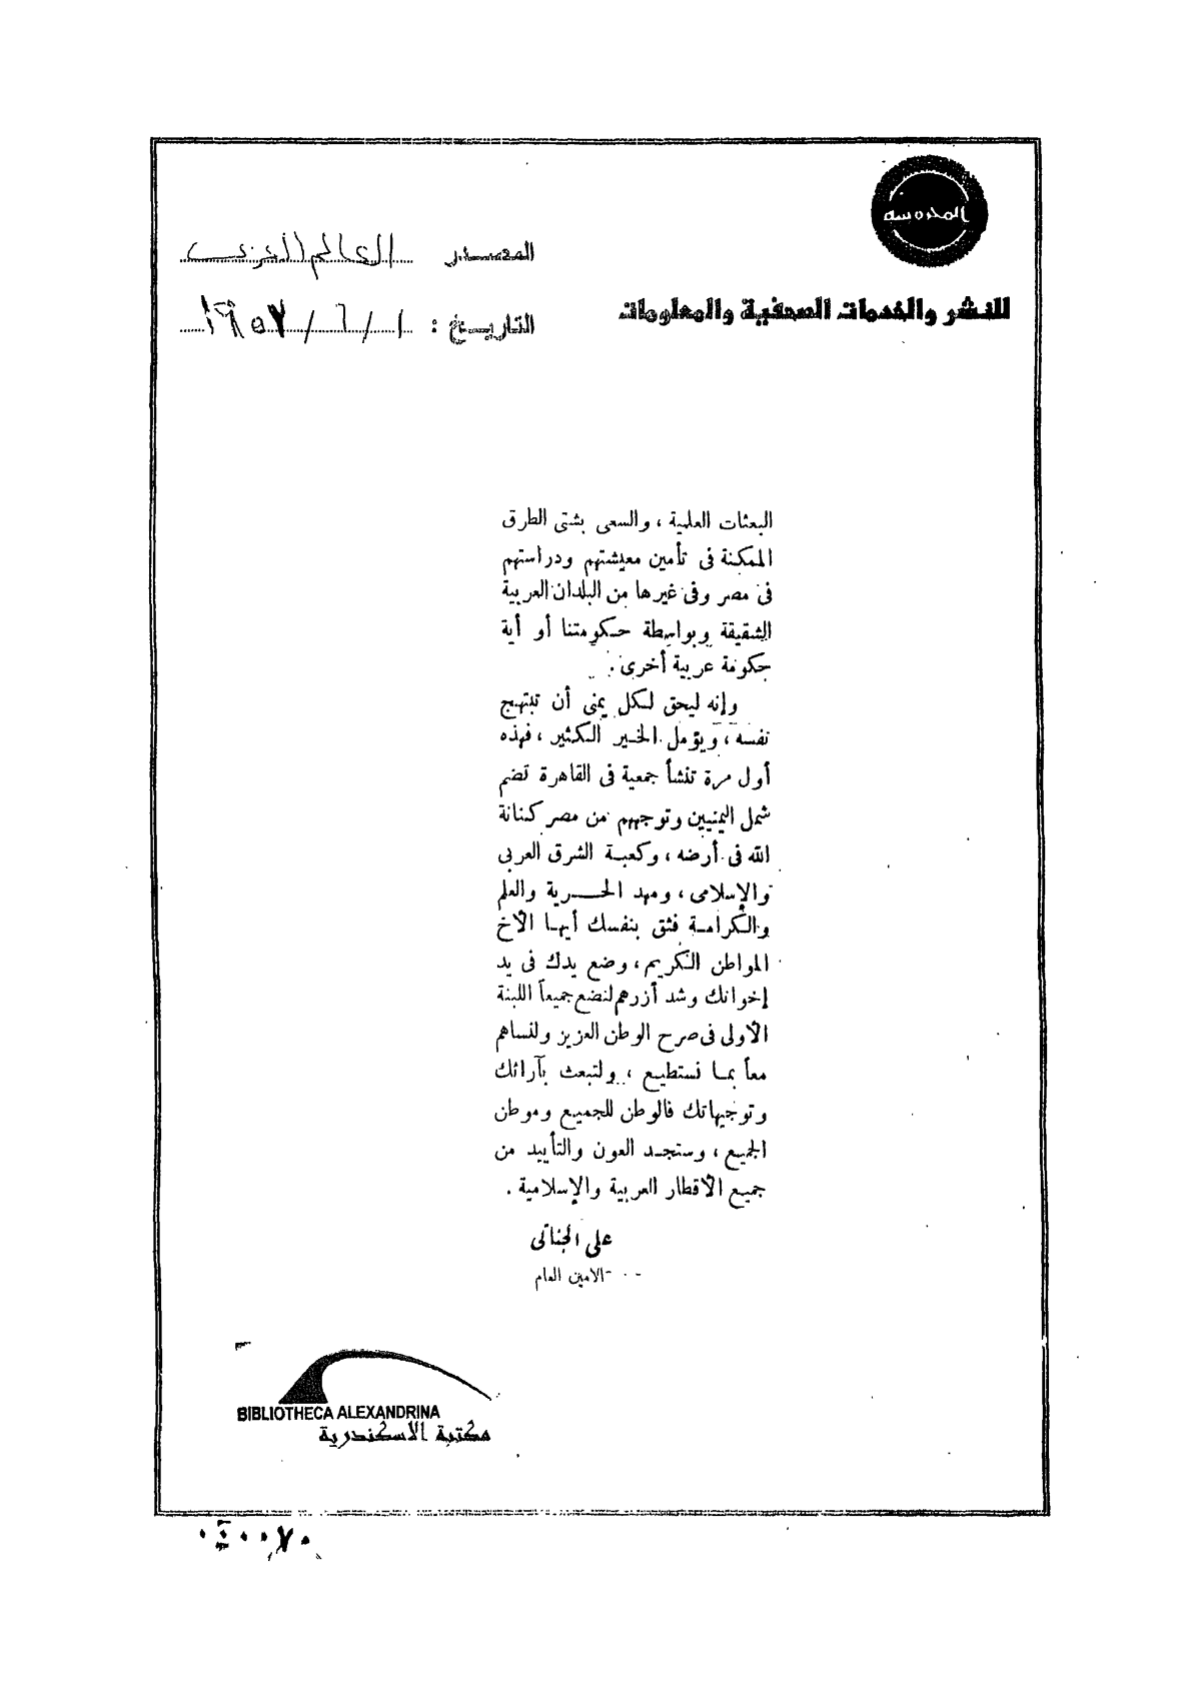 المحروسة
للنشر والخدمات الصحفية والمعلومات
المصدر العالم العربى
التاريخ : ١ / ٦ / ١٩٥٧
البعثات العلمية ، والسعى بشتى الطرق
الممكنة فى تأمين معيشتهم ودراستهم
فى مصر وفى غيرها من البلدان العربية
الشقيقة وبواسطة حكومتنا أو أية
حكومة عربية أخرى .
وإنه ليحق لكل يمنى أن تبتهج
نفسه ، ويؤمل الخير الكثير ، فهذه
أول مرة تنشأ جمعية فى القاهرة تضم
شمل اليمنيين وتوجههم من مصر كنانة
الله فى أرضه ، وكعبة الشرق العربى
والإسلامى ، ومهد الحرية والعلم
والكرامة فثق بنفسك أيها الأخ
المواطن الكريم ، وضع يدك فى يد
إخوانك وشد أزرهم لنضع جميعاً اللبنة
الأولى فى صرح الوطن العزيز ولنساهم
معاً بما نستطيع ، ولتبعث بآرائك
وتوجيهاتك فالوطن للجميع وموطن
الجميع ، وستجد العون والتأييد من
جميع الأقطار العربية والإسلامية .
على الجناتى
الامين العام
BIBLIOTHECA ALEXANDRINA
مكتبة الاسكندرية